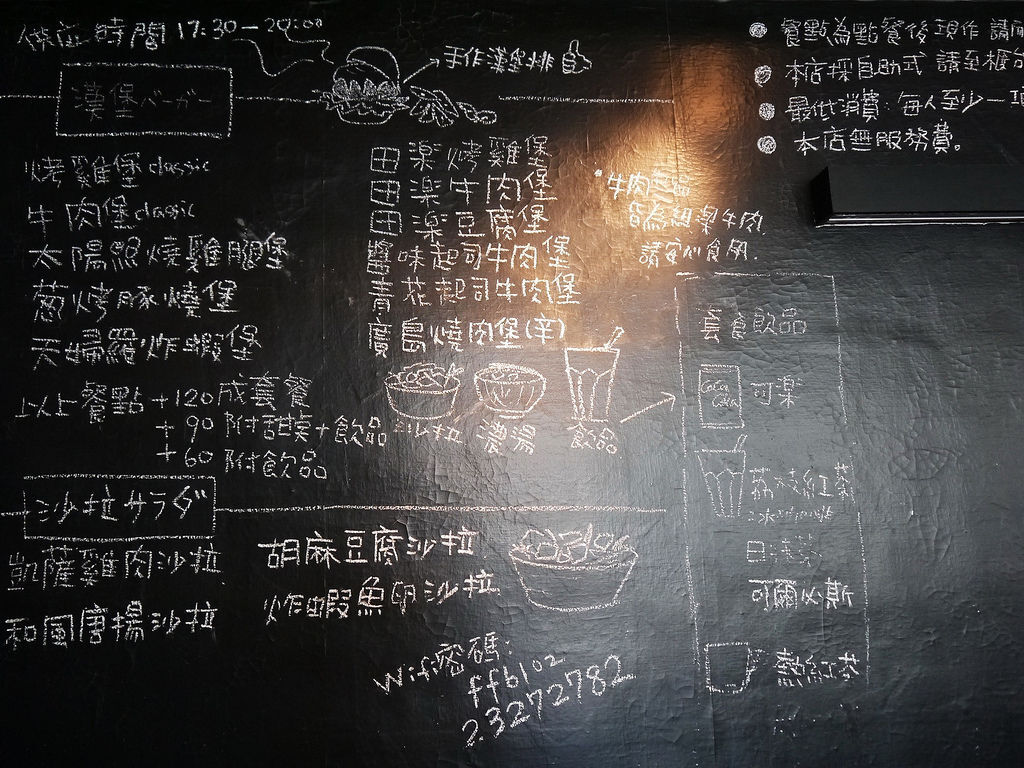 供應時間 17:30-20:00
手作漢堡排
漢堡バーガー
烤雞堡classic
牛肉堡classic
太陽照燒雞腿堡
蔥烤豚燒堡
天婦羅炸蝦堡
田楽烤雞堡
田楽牛肉堡
田楽豆腐堡
醬味起司牛肉堡
青花起司牛肉堡
廣島燒肉堡(辛)
牛肉
皆為紐澳牛肉
請安心食用.
以上餐點+120成套餐
+90 附甜菜+飲品
+60 附飲品
沙拉
濃湯
飲品
沙拉サラダ
凱薩雞肉沙拉
和風唐揚沙拉
胡麻豆腐沙拉
炸蝦魚卵沙拉
Wifi密碼:
ffb102
23272782
餐點為點餐後現作 請
本店採自助式 請至櫃台
最低消費:每人至少一
本店無服務費。
套食飲品
CocaCola
可樂
荔枝紅茶
可爾必斯
熱紅茶